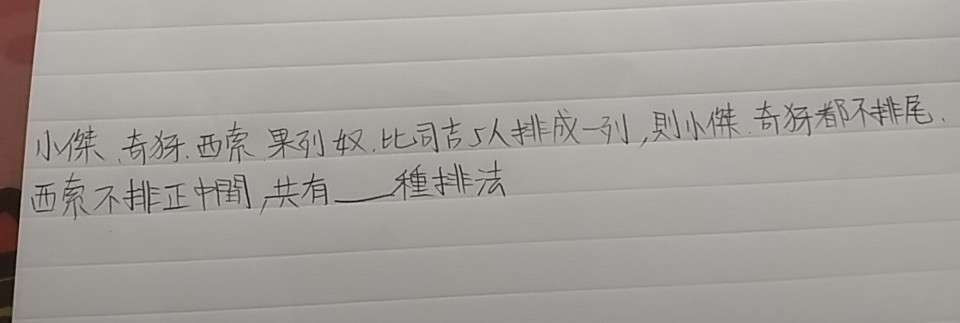 小傑、奇犽、西索、果列奴、比司吉5人排成一列,則小傑、奇犽都不排尾、
西索不排正中間,共有___種排法